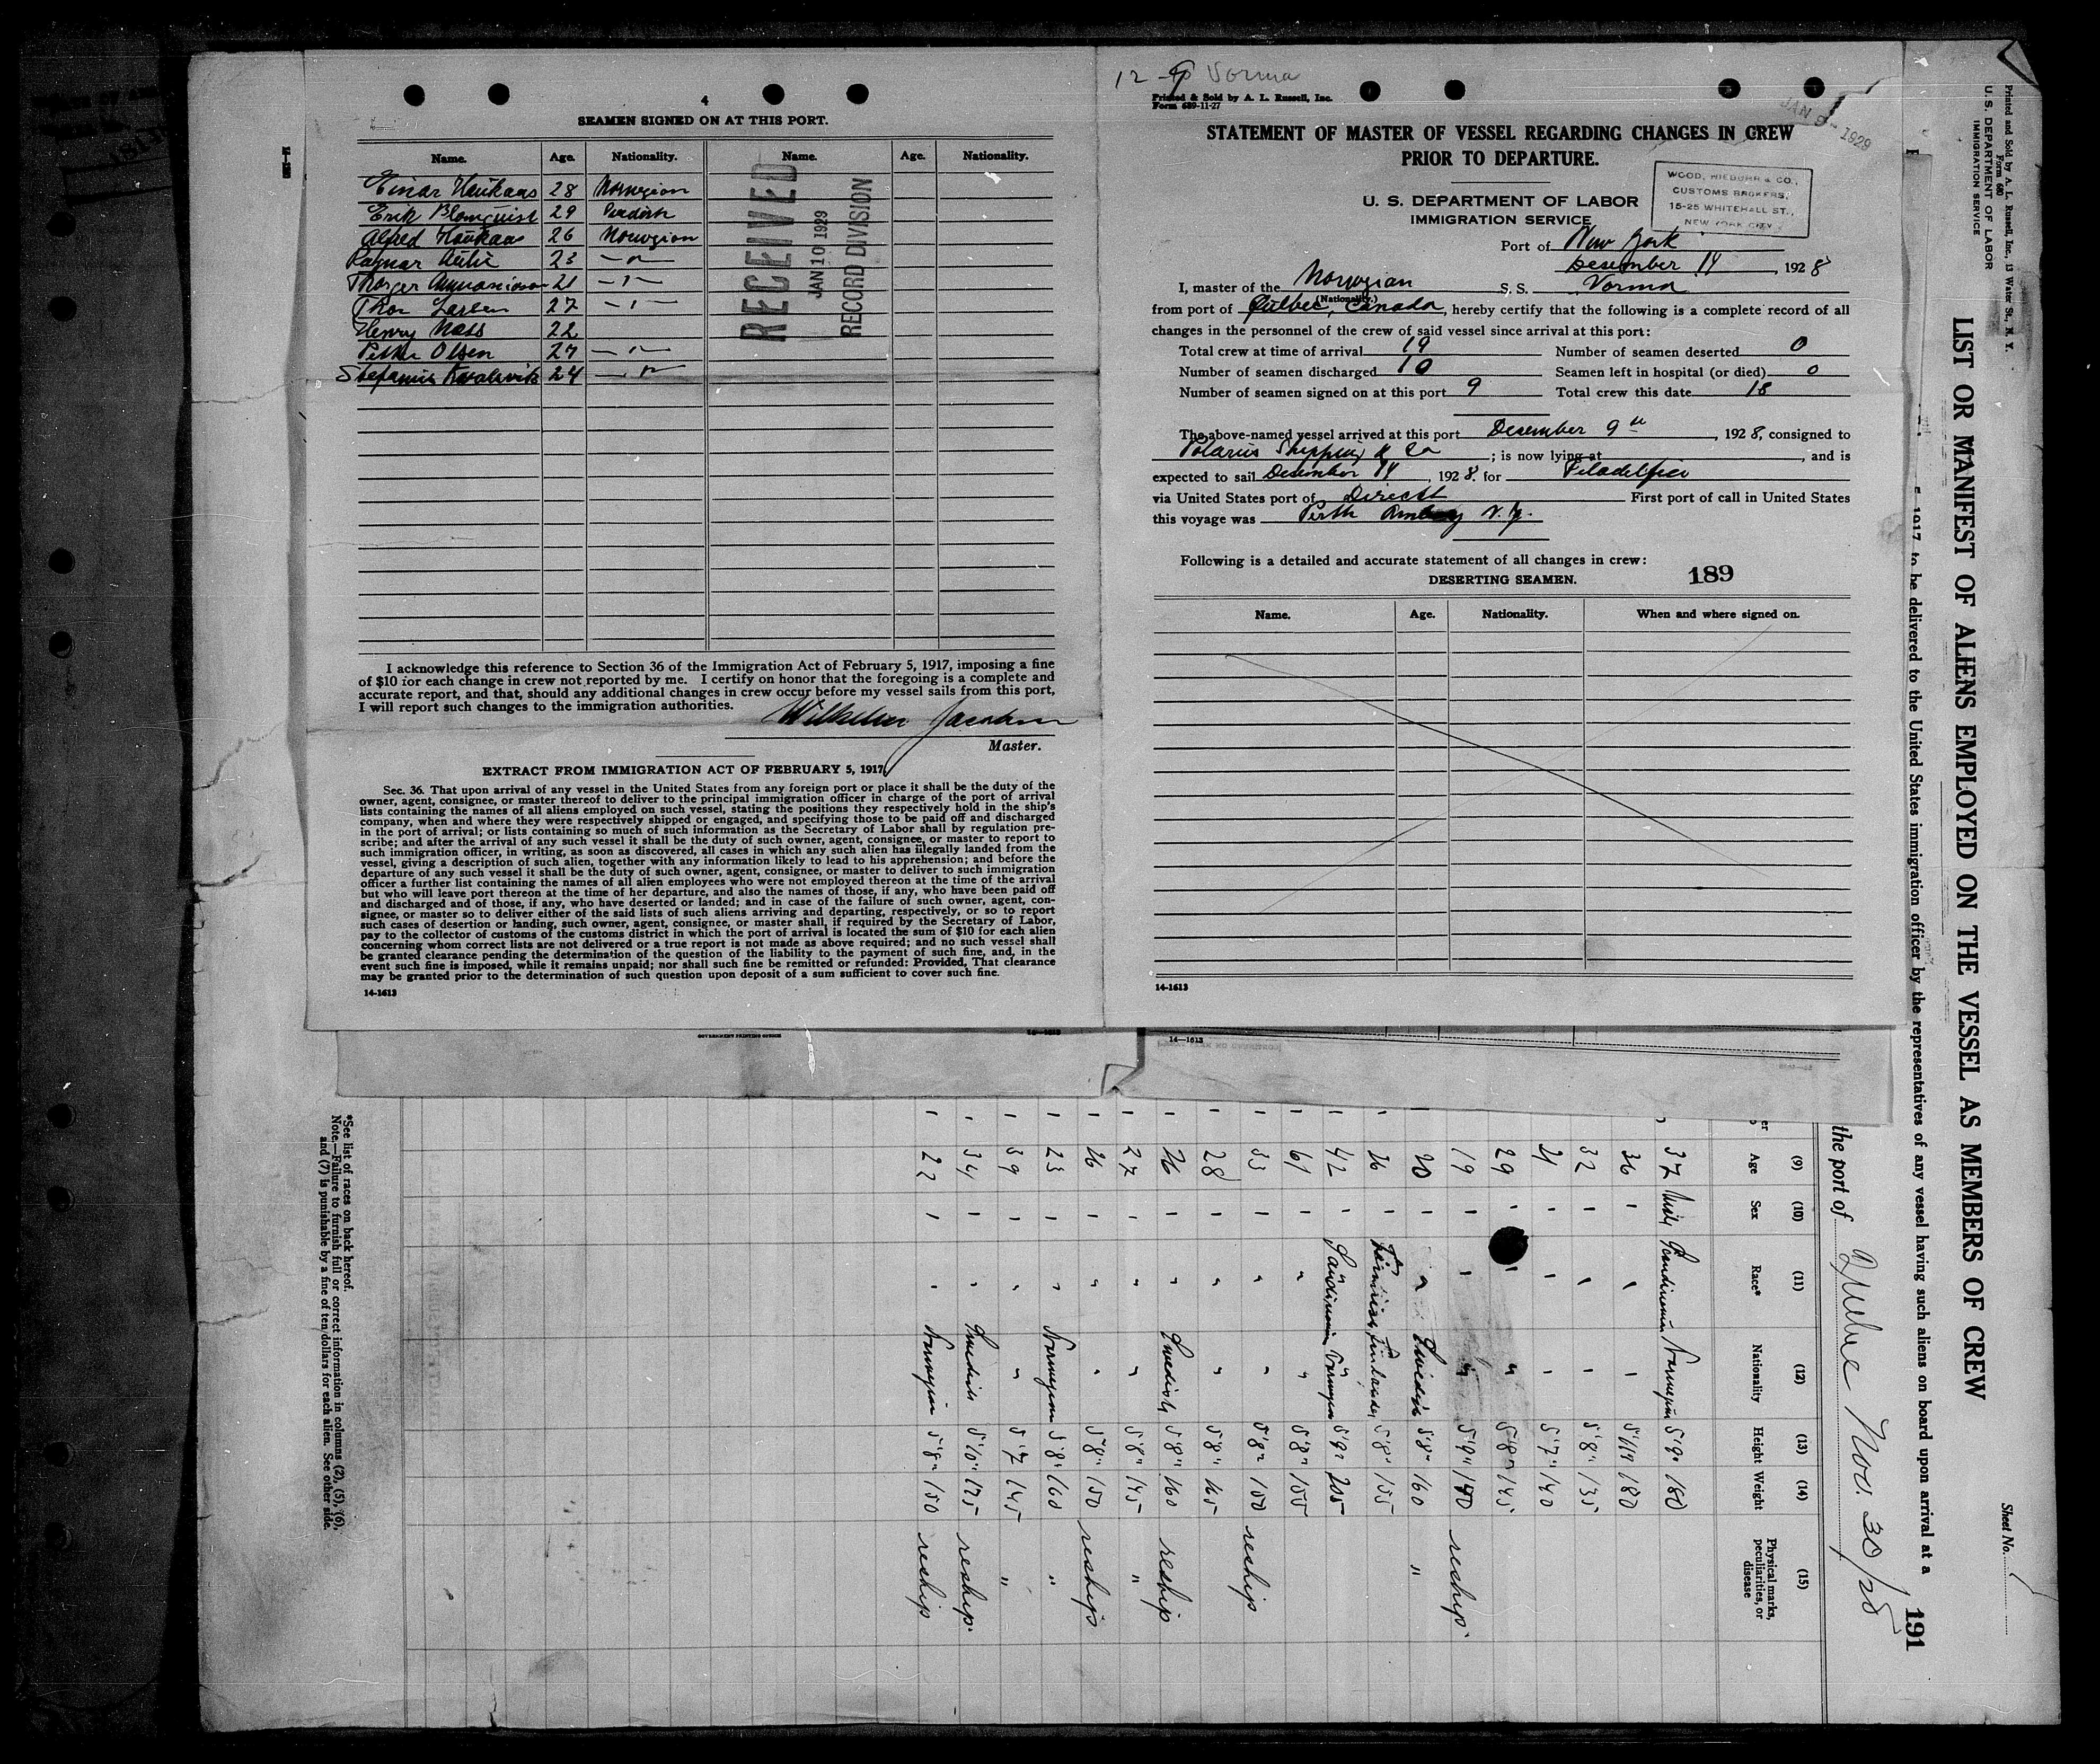 4
SEAMEN SIGNED ON AT THIS PORT.
Name. Age. Nationality. Name. Age. Nationality.
Einar Haukaas 28 Norwegian
Erik Blomquist 29
Alfred Haukaas 26 Norwegian
Ragnar 23 — " —
Thorger 21 — " —
Thor Larsen 27 — " —
Henry Nass 22
Petter Olsen 27 — " —
24 — " —
RECEIVED
JAN 10 1929
RECORD DIVISION
I acknowledge this reference to Section 36 of the Immigration Act of February 5, 1917, imposing a fine
of $10 for each change in crew not reported by me. I certify on honor that the foregoing is a complete and
accurate report, and that, should any additional changes in crew occur before my vessel sails from this port,
I will report such changes to the immigration authorities.
Wilhelm Jacobsen
Master.
EXTRACT FROM IMMIGRATION ACT OF FEBRUARY 5, 1917
Sec. 36. That upon arrival of any vessel in the United States from any foreign port or place it shall be the duty of the
owner, agent, consignee, or master thereof to deliver to the principal immigration officer in charge of the port of arrival
lists containing the names of all aliens employed on such vessel, stating the positions they respectively hold in the ship's
company, when and where they were respectively shipped or engaged, and specifying those to be paid off and discharged
in the port of arrival; or lists containing so much of such information as the Secretary of Labor shall by regulation pre-
scribe; and after the arrival of any such vessel it shall be the duty of such owner, agent, consignee, or master to report to
such immigration officer, in writing, as soon as discovered, all cases in which any such alien has illegally landed from the
vessel, giving a description of such alien, together with any information likely to lead to his apprehension; and before the
departure of any such vessel it shall be the duty of such owner, agent, consignee, or master to deliver to such immigration
officer a further list containing the names of all alien employees who were not employed thereon at the time of the arrival
but who will leave port thereon at the time of her departure, and also the names of those, if any, who have been paid off
and discharged and of those, if any, who have deserted or landed; and in case of the failure of such owner, agent, con-
signee, or master so to deliver either of the said lists of such aliens arriving and departing, respectively, or so to report
such cases of desertion or landing, such owner, agent, consignee, or master shall, if required by the Secretary of Labor,
pay to the collector of customs of the customs district in which the port of arrival is located the sum of $10 for each alien
concerning whom correct lists are not delivered or a true report is not made as above required; and no such vessel shall
be granted clearance pending the determination of the question of the liability to the payment of such fine, and, in the
event such fine is imposed, while it remains unpaid; nor shall such fine be remitted or refunded: Provided, That clearance
may be granted prior to the determination of such question upon deposit of a sum sufficient to cover such fine.
14-1613
GOVERNMENT PRINTING OFFICE
12-9 Vorma
Printed & Sold by A. L. Russell, Inc.
Form 689-11-27
JAN 9- 1929
STATEMENT OF MASTER OF VESSEL REGARDING CHANGES IN CREW
PRIOR TO DEPARTURE.
WOOD, NIEBUHR & CO.,
CUSTOMS BROKERS,
15-25 WHITEHALL ST.,
NEW YORK CITY
U. S. DEPARTMENT OF LABOR
IMMIGRATION SERVICE
Port of New York
Desember 14, 1928
I, master of the Norwegian S. S. Vorma
(Nationality.)
from port of Quebec, Canada, hereby certify that the following is a complete record of all
changes in the personnel of the crew of said vessel since arrival at this port:
Total crew at time of arrival 19 Number of seamen deserted 0
Number of seamen discharged 10 Seamen left in hospital (or died) 0
Number of seamen signed on at this port 9 Total crew this date 18
The above-named vessel arrived at this port Desember 9th, 1928, consigned to
Polarus Shipping & Co; is now lying at , and is
expected to sail Desember 14, 1928. for Filadelfia
via United States port of Direct First port of call in United States
this voyage was Perth Amboy N.Y.
Following is a detailed and accurate statement of all changes in crew:
DESERTING SEAMEN. 189
Name. Age. Nationality. When and where signed on.
14-1613
14—1613
Printed and Sold by A. L. Russell, Inc., 13 Water St., N. Y.
Form 680
U. S. DEPARTMENT OF LABOR
IMMIGRATION SERVICE
Sheet No. 1
LIST OR MANIFEST OF ALIENS EMPLOYED ON THE VESSEL AS MEMBERS OF CREW
191
1917 to be delivered to the United States immigration officer by the representatives of any vessel having such aliens on board upon arrival at a
the port of Quebec Nov. 30/28
(9) (10) (11) (12) (13) (14) (15)
Age Sex Race* Nationality Height Weight Physical marks, peculiarities, or disease
37 Male Scandinavian Norwegian 5'9" 180
36 " " " 5'11" 180
32 " " " 5'8" 135
21 " " " 5'7" 140
29 " " " 5'8" 145
19 " " " 5'9" 140 reship.
20 " " Swedish 5'8" 160 "
26 " Finnish Finlander 5'8" 155
42 " Scandinavian Norwegian 5'9" 205
61 " " " 5'8" 155
33 " " " 5'8" 150 reship
28 " " " 5'8" 165
26 " " Swedish 5'8" 160 reship
27 " " " 5'8" 145 "
26 " " " 5'8" 150 reship
23 " " Norwegian 5'8" 160 "
39 " " " 5'7" 145 "
34 " " Swedish 5'10" 175 reship.
22 " " Norwegian 5'8" 150 reship
*See list of races on back hereof.
Note.—Failure to furnish full or correct information in columns (2), (5), (6),
and (7) is punishable by a fine of ten dollars for each alien. See other side.